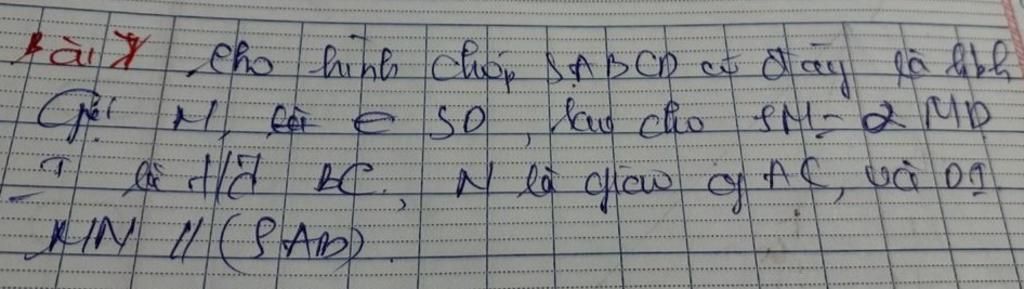 Bài 7 Cho hình chóp SABCD có đáy là hbh
Gọi M ∈ SD, sao cho SM = 2 MD
I là t/đ BC, N là giao of AC, và DI
MN // (SAB)